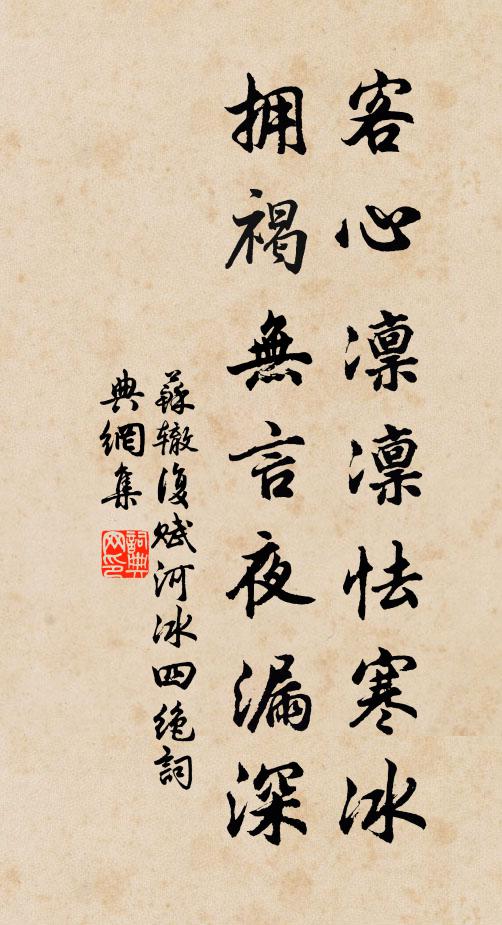 客心凛凛怯寒冰
拥褐無言夜漏深
蘇辙復赋河冰四绝詞
典網集
詞典
网印